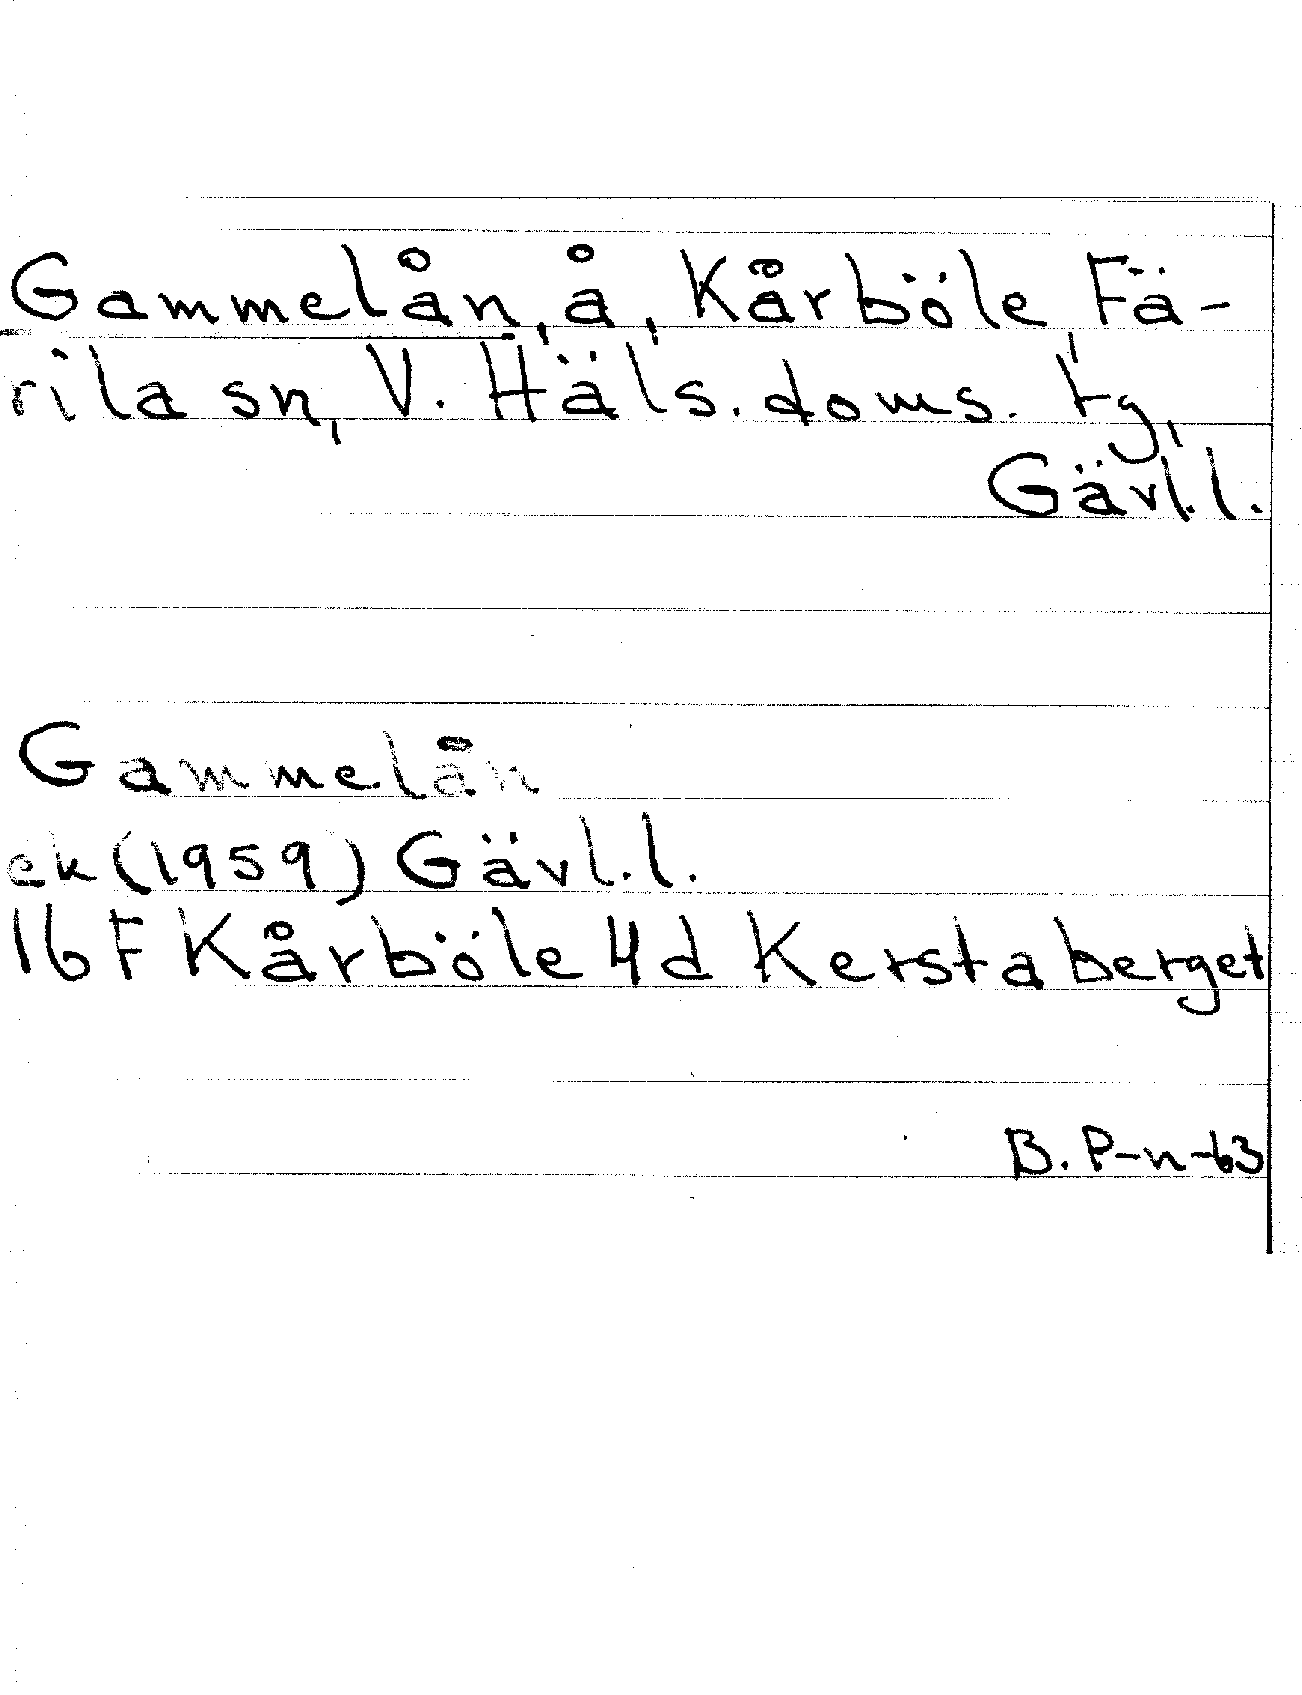 Gammelån, å, Kårböle, Fä-
rila sn, V. Häls. doms. tg,
Gävl.l.
Gammelån
ek (1959) Gävl.l.
16 F Kårböle 4d Kerstaberget
B. P-n-63